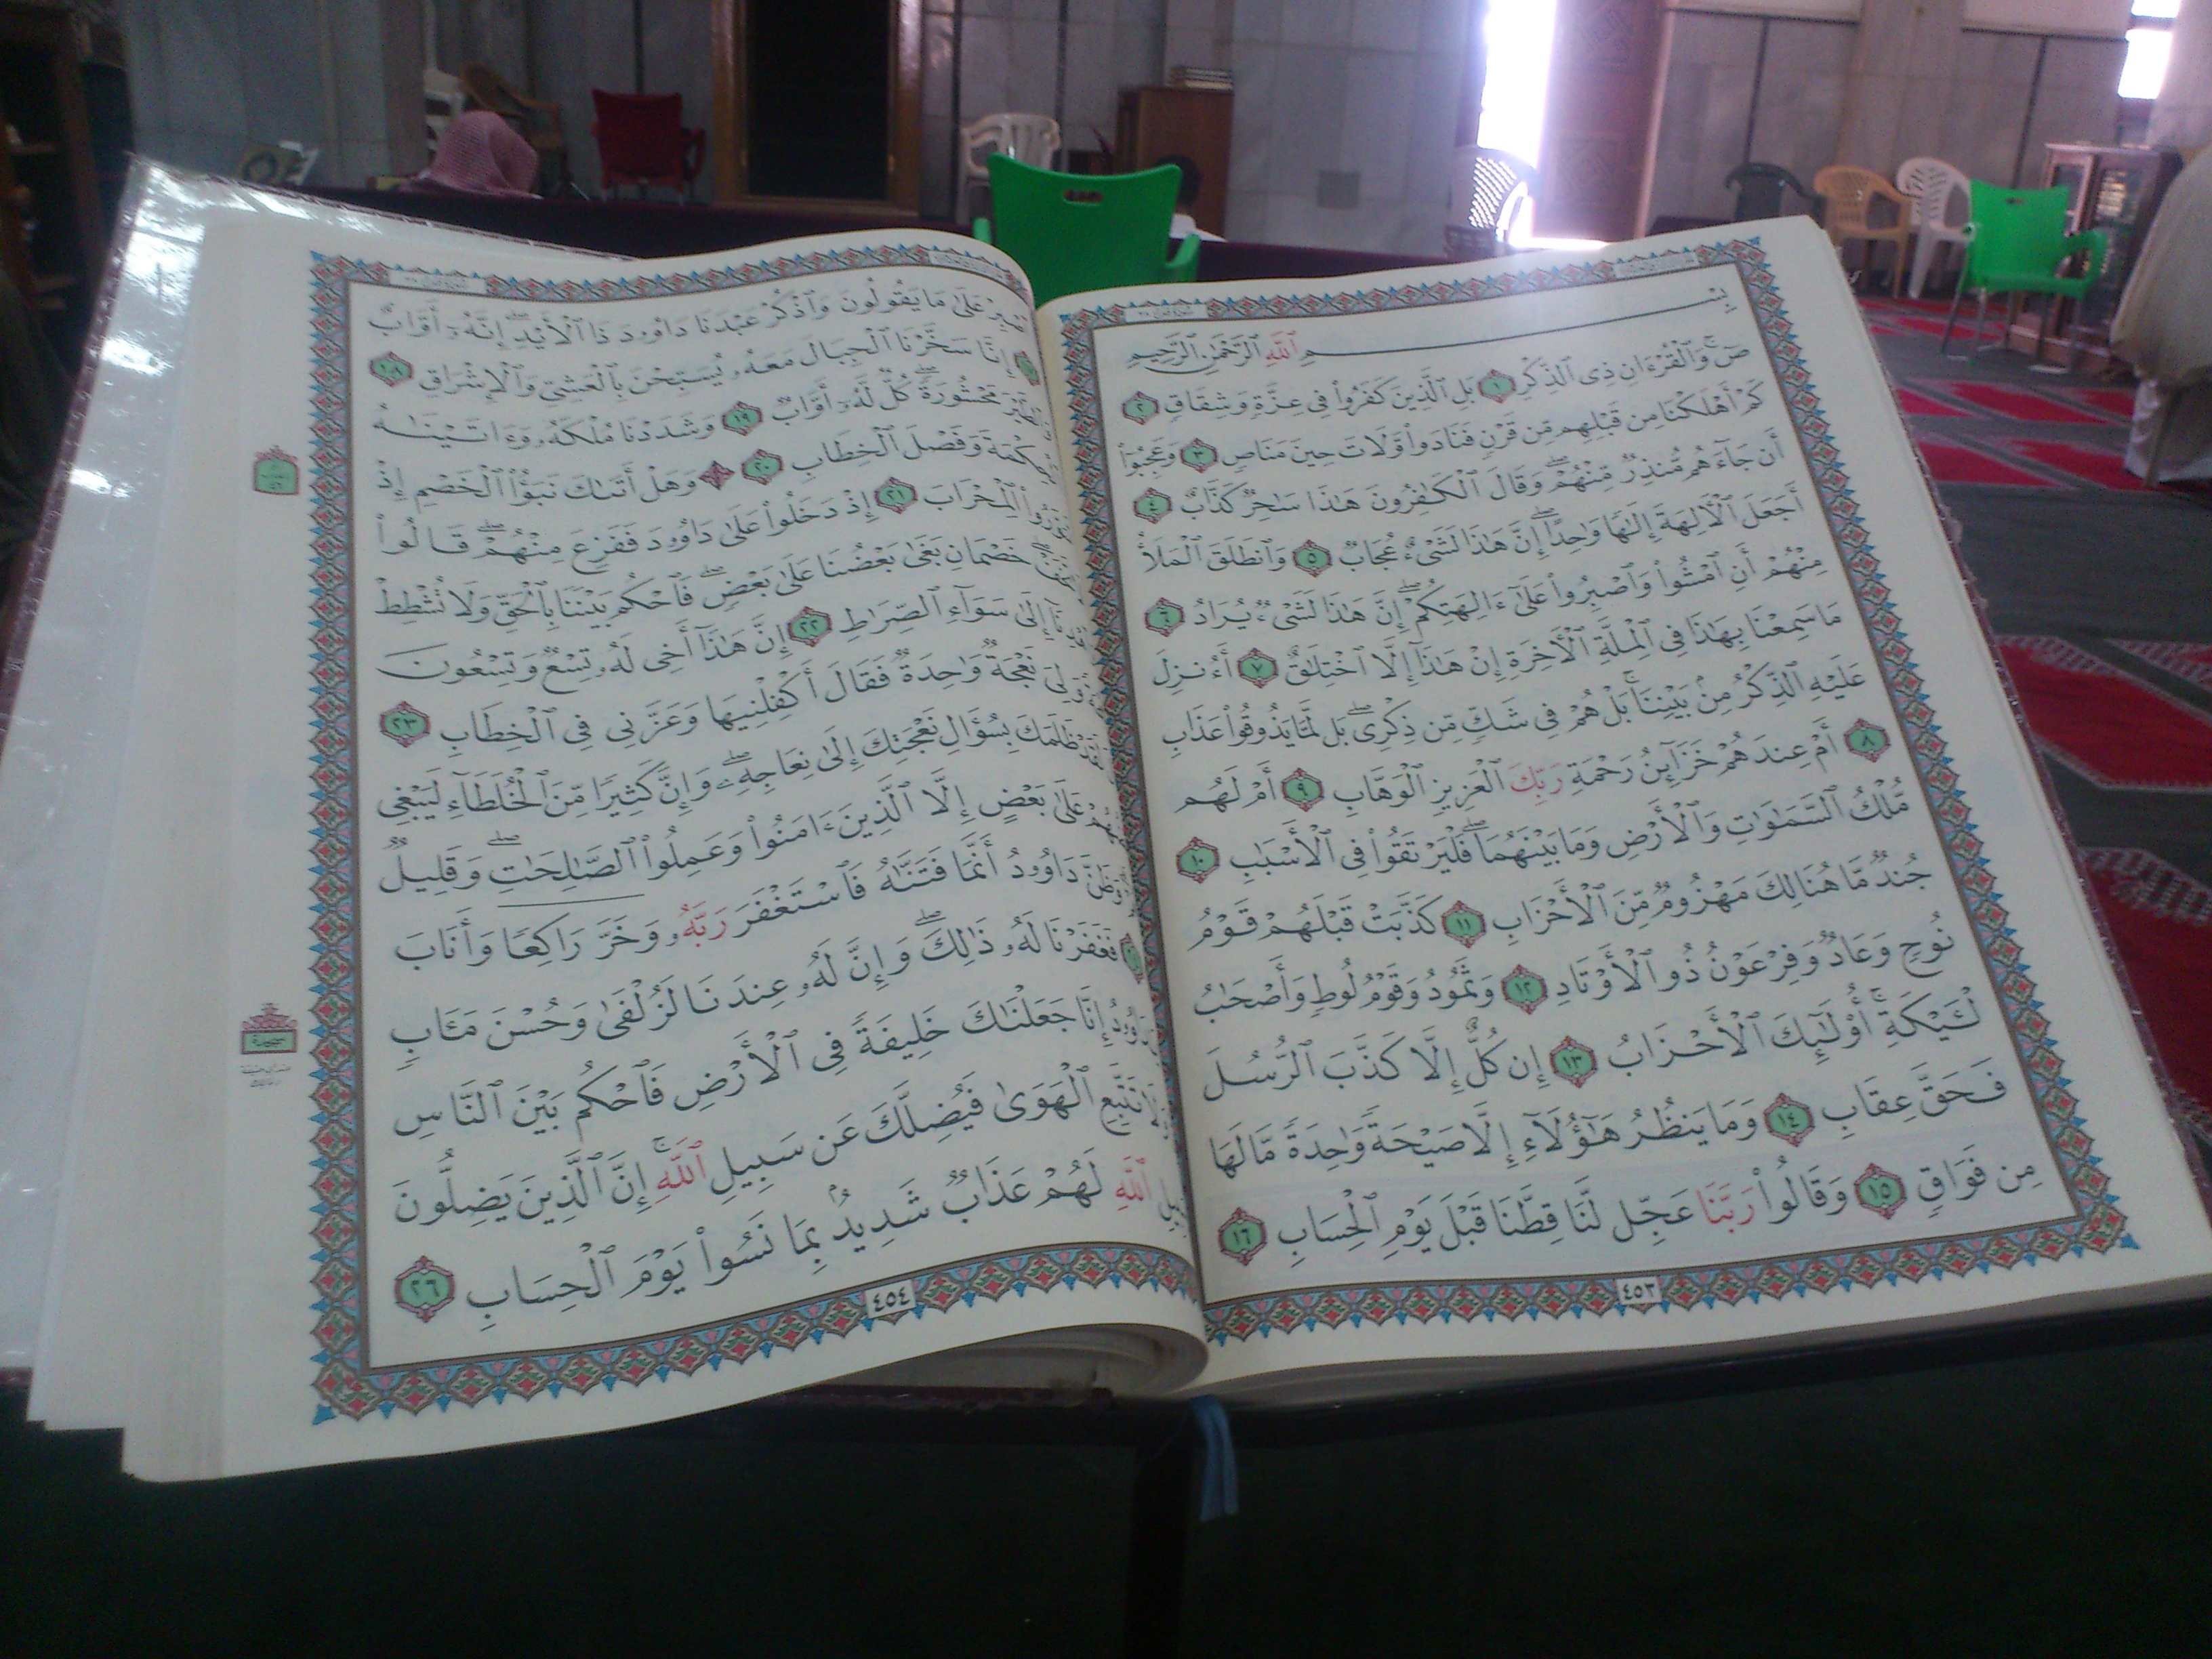 بِسْمِ ٱللَّهِ ٱلرَّحْمَٰنِ ٱلرَّحِيمِ
صٓ ۚ وَٱلْقُرْءَانِ ذِى ٱلذِّكْرِ ١ بَلِ ٱلَّذِينَ كَفَرُوا۟ فِى عِزَّةٍ وَشِقَاقٍ ٢
كَمْ أَهْلَكْنَا مِن قَبْلِهِم مِّن قَرْنٍ فَنَادَوا۟ وَّلَاتَ حِينَ مَنَاصٍ ٣ وَعَجِبُوٓا۟
أَن جَآءَهُم مُّنذِرٌ مِّنْهُمْ ۖ وَقَالَ ٱلْكَٰفِرُونَ هَٰذَا سَٰحِرٌ كَذَّابٌ ٤
أَجَعَلَ ٱلْءَالِهَةَ إِلَٰهًا وَٰحِدًا ۖ إِنَّ هَٰذَا لَشَىْءٌ عُجَابٌ ٥ وَٱنطَلَقَ ٱلْمَلَأُ
مِنْهُمْ أَنِ ٱمْشُوا۟ وَٱصْبِرُوا۟ عَلَىٰٓ ءَالِهَتِكُمْ ۖ إِنَّ هَٰذَا لَشَىْءٌ يُرَادُ ٦
مَا سَمِعْنَا بِهَٰذَا فِى ٱلْمِلَّةِ ٱلْءَاخِرَةِ إِنْ هَٰذَآ إِلَّا ٱخْتِلَٰقٌ ٧ أَءُنزِلَ
عَلَيْهِ ٱلذِّكْرُ مِنۢ بَيْنِنَا ۚ بَلْ هُمْ فِى شَكٍّ مِّن ذِكْرِى ۖ بَل لَّمَّا يَذُوقُوا۟ عَذَابِ
٨ أَمْ عِندَهُمْ خَزَآئِنُ رَحْمَةِ رَبِّكَ ٱلْعَزِيزِ ٱلْوَهَّابِ ٩ أَمْ لَهُم
مُّلْكُ ٱلسَّمَٰوَٰتِ وَٱلْأَرْضِ وَمَا بَيْنَهُمَا ۖ فَلْيَرْتَقُوا۟ فِى ٱلْأَسْبَٰبِ ١٠
جُندٌ مَّا هُنَالِكَ مَهْزُومٌ مِّنَ ٱلْأَحْزَابِ ١١ كَذَّبَتْ قَبْلَهُمْ قَوْمُ
نُوحٍ وَعَادٌ وَفِرْعَوْنُ ذُو ٱلْأَوْتَادِ ١٢ وَثَمُودُ وَقَوْمُ لُوطٍ وَأَصْحَٰبُ
لْـَٔيْكَةِ ۚ أُو۟لَٰٓئِكَ ٱلْأَحْزَابُ ١٣ إِن كُلٌّ إِلَّا كَذَّبَ ٱلرُّسُلَ
فَحَقَّ عِقَابِ ١٤ وَمَا يَنظُرُ هَٰٓؤُلَآءِ إِلَّا صَيْحَةً وَٰحِدَةً مَّا لَهَا
مِن فَوَاقٍ ١٥ وَقَالُوا۟ رَبَّنَا عَجِّل لَّنَا قِطَّنَا قَبْلَ يَوْمِ ٱلْحِسَابِ ١٦
٤٥٣
ٱصْبِرْ عَلَىٰ مَا يَقُولُونَ وَٱذْكُرْ عَبْدَنَا دَاوُۥدَ ذَا ٱلْأَيْدِ ۖ إِنَّهُۥٓ أَوَّابٌ
إِنَّا سَخَّرْنَا ٱلْجِبَالَ مَعَهُۥ يُسَبِّحْنَ بِٱلْعَشِىِّ وَٱلْإِشْرَاقِ ١٨
مَحْشُورَةً ۖ كُلٌّ لَّهُۥٓ أَوَّابٌ ١٩ وَشَدَدْنَا مُلْكَهُۥ وَءَاتَيْنَٰهُ
ٱلْحِكْمَةَ وَفَصْلَ ٱلْخِطَابِ ٢٠ ۞ وَهَلْ أَتَىٰكَ نَبَؤُا۟ ٱلْخَصْمِ إِذْ
ٱلْمِحْرَابَ ٢١ إِذْ دَخَلُوا۟ عَلَىٰ دَاوُۥدَ فَفَزِعَ مِنْهُمْ ۖ قَالُوا۟
خَصْمَانِ بَغَىٰ بَعْضُنَا عَلَىٰ بَعْضٍ ۖ فَٱحْكُم بَيْنَنَا بِٱلْحَقِّ وَلَا تُشْطِطْ
إِلَىٰ سَوَآءِ ٱلصِّرَٰطِ ٢٢ إِنَّ هَٰذَآ أَخِى لَهُۥ تِسْعٌ وَتِسْعُونَ
وَلِىَ نَعْجَةٌ وَٰحِدَةٌ فَقَالَ أَكْفِلْنِيهَا وَعَزَّنِى فِى ٱلْخِطَابِ ٢٣
لَقَدْ ظَلَمَكَ بِسُؤَالِ نَعْجَتِكَ إِلَىٰ نِعَاجِهِۦ ۖ وَإِنَّ كَثِيرًا مِّنَ ٱلْخُلَطَآءِ لَيَبْغِى
عَلَىٰ بَعْضٍ إِلَّا ٱلَّذِينَ ءَامَنُوا۟ وَعَمِلُوا۟ ٱلصَّٰلِحَٰتِ وَقَلِيلٌ
وَظَنَّ دَاوُۥدُ أَنَّمَا فَتَنَّٰهُ فَٱسْتَغْفَرَ رَبَّهُۥ وَخَرَّ رَاكِعًا وَأَنَابَ
فَغَفَرْنَا لَهُۥ ذَٰلِكَ ۖ وَإِنَّ لَهُۥ عِندَنَا لَزُلْفَىٰ وَحُسْنَ مَـَٔابٍ
إِنَّا جَعَلْنَٰكَ خَلِيفَةً فِى ٱلْأَرْضِ فَٱحْكُم بَيْنَ ٱلنَّاسِ
تَتَّبِعِ ٱلْهَوَىٰ فَيُضِلَّكَ عَن سَبِيلِ ٱللَّهِ ۚ إِنَّ ٱلَّذِينَ يَضِلُّونَ
ٱللَّهِ لَهُمْ عَذَابٌ شَدِيدٌۢ بِمَا نَسُوا۟ يَوْمَ ٱلْحِسَابِ ٢٦
٤٥٤
سجدة